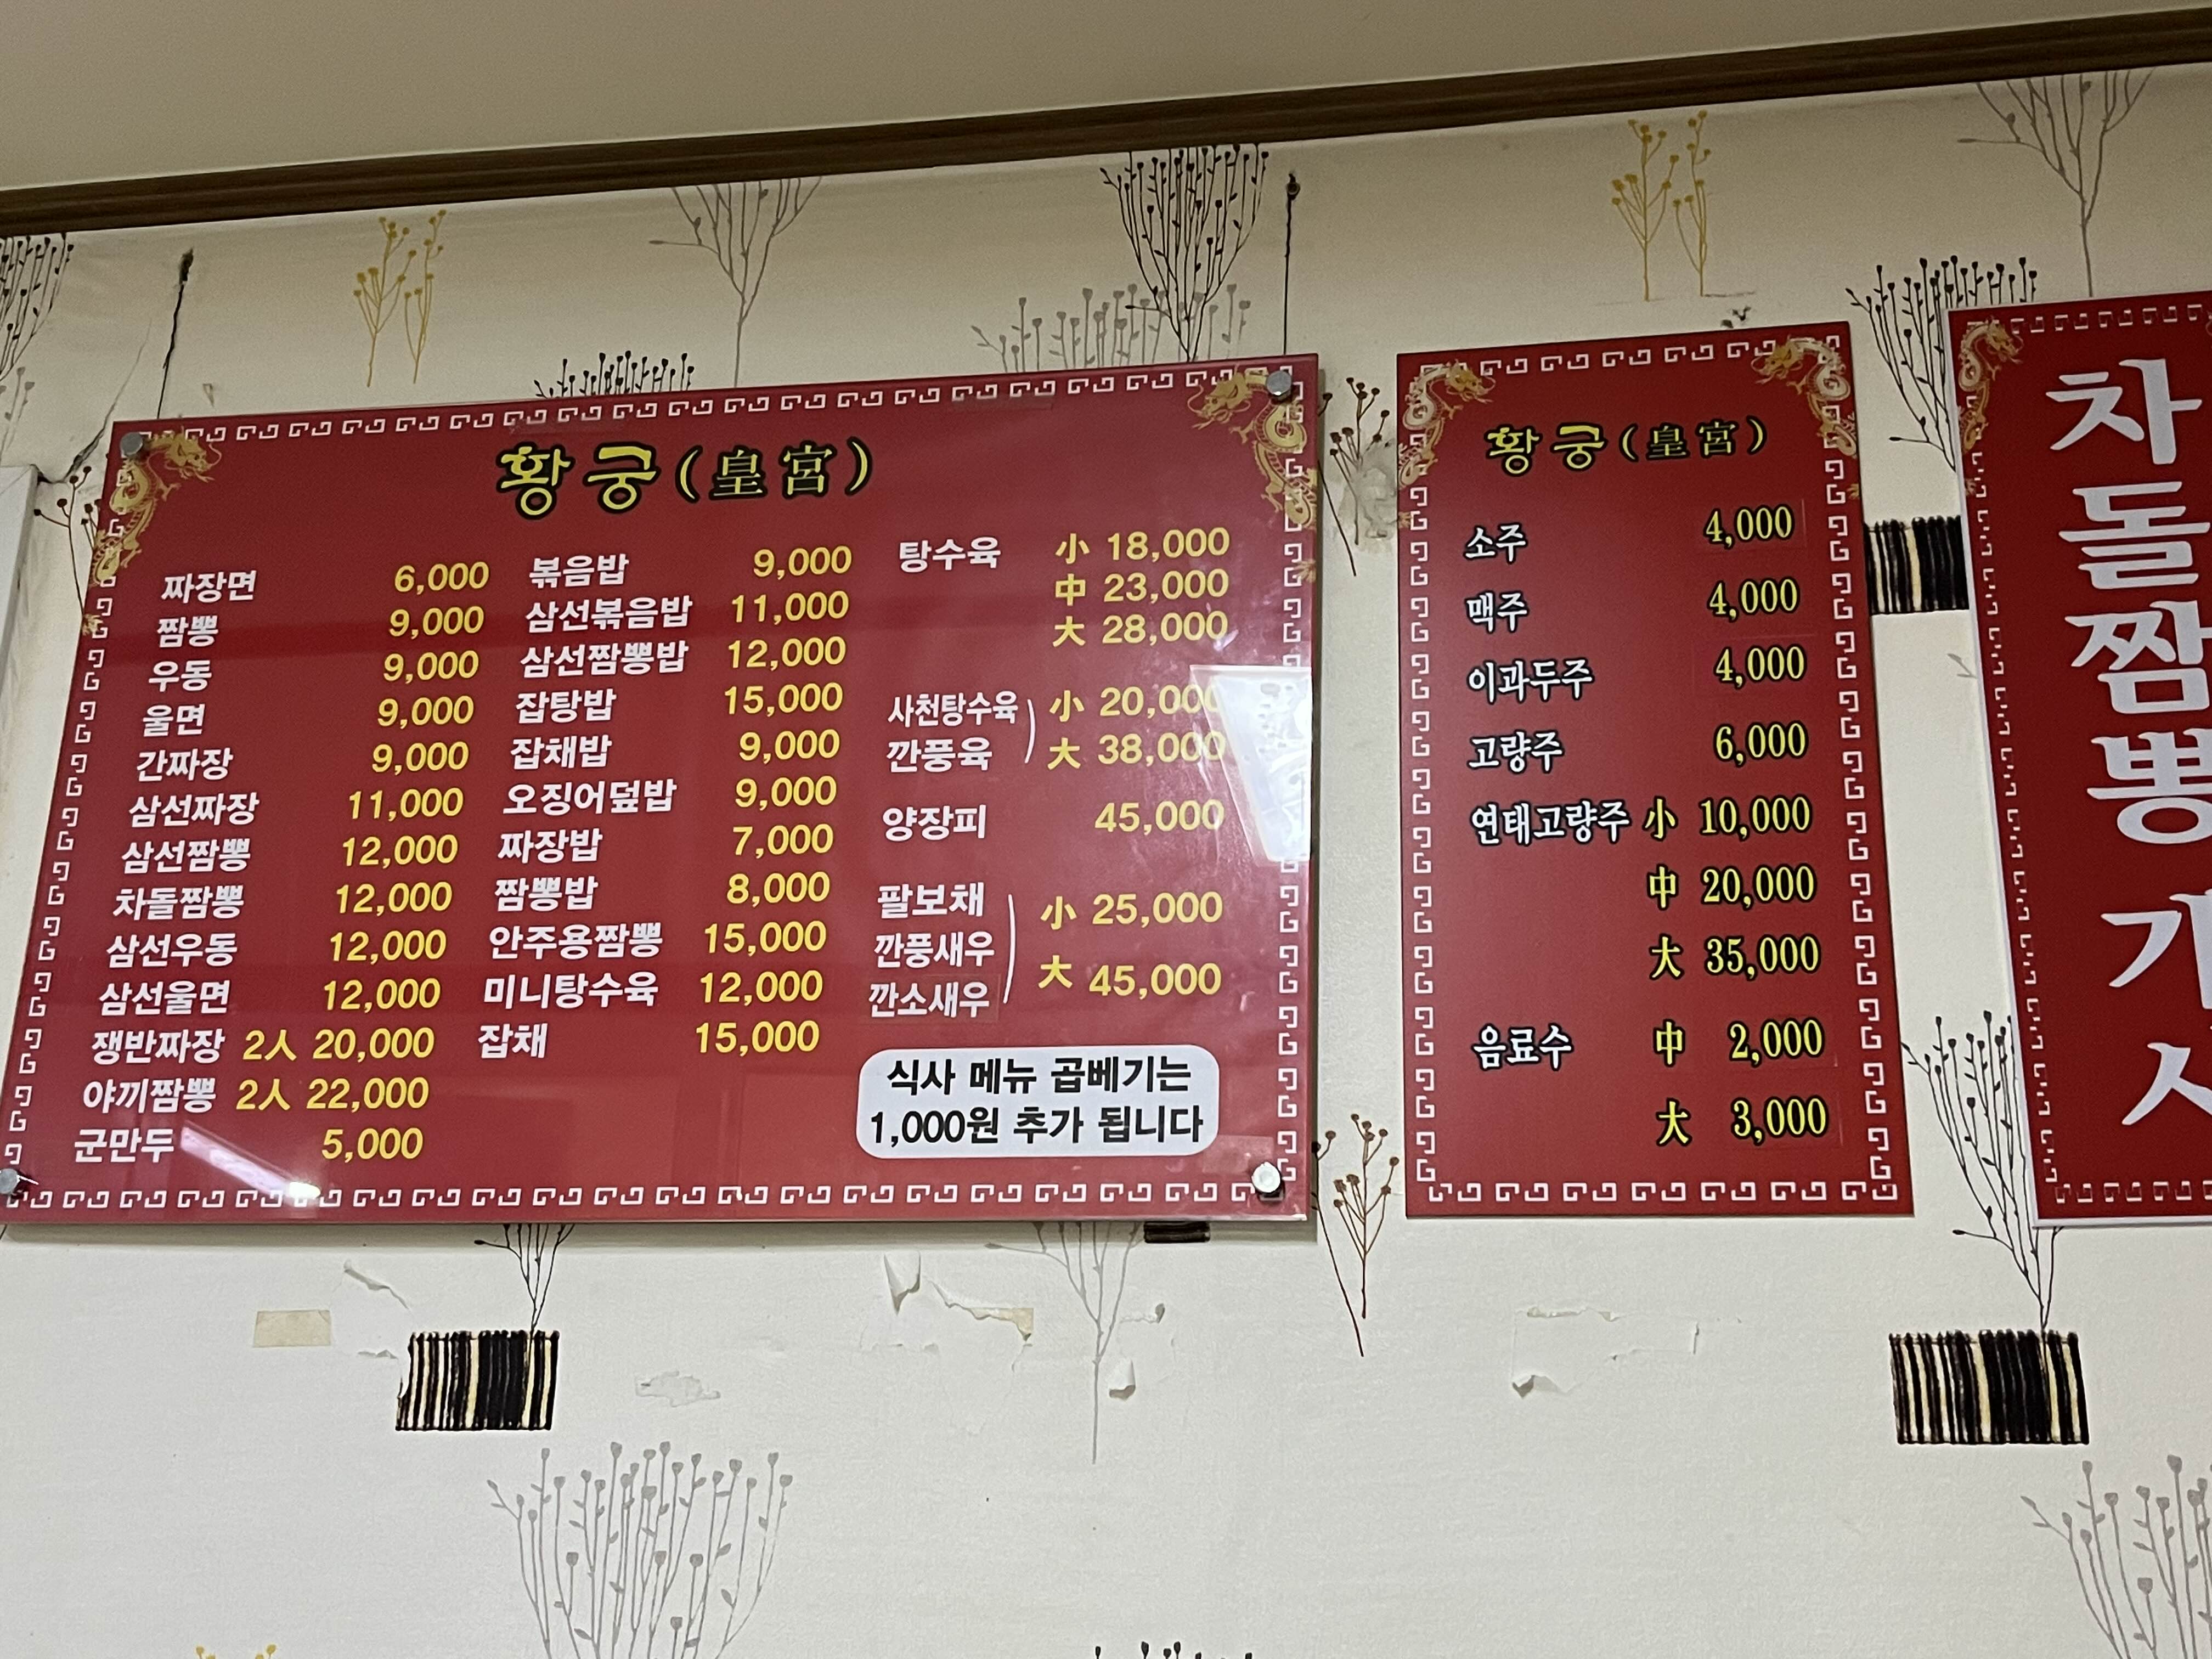 황궁(皇宮)
짜장면 6,000
짬뽕 9,000
우동 9,000
울면 9,000
간짜장 9,000
삼선짜장 11,000
삼선짬뽕 12,000
차돌짬뽕 12,000
삼선우동 12,000
삼선울면 12,000
쟁반짜장 2人 20,000
야끼짬뽕 2人 22,000
군만두 5,000
볶음밥 9,000
삼선볶음밥 11,000
삼선짬뽕밥 12,000
잡탕밥 15,000
잡채밥 9,000
오징어덮밥 9,000
짜장밥 7,000
짬뽕밥 8,000
안주용짬뽕 15,000
미니탕수육 12,000
잡채 15,000
탕수육 小 18,000
中 23,000
大 28,000
사천탕수육 小 20,000
깐풍육 大 38,000
양장피 45,000
팔보채 小 25,000
깐풍새우
깐소새우 大 45,000
식사 메뉴 곱베기는
1,000원 추가 됩니다
황궁(皇宮)
소주 4,000
맥주 4,000
이과두주 4,000
고량주 6,000
연태고량주 小 10,000
中 20,000
大 35,000
음료수 中 2,000
大 3,000
차돌짬뽕